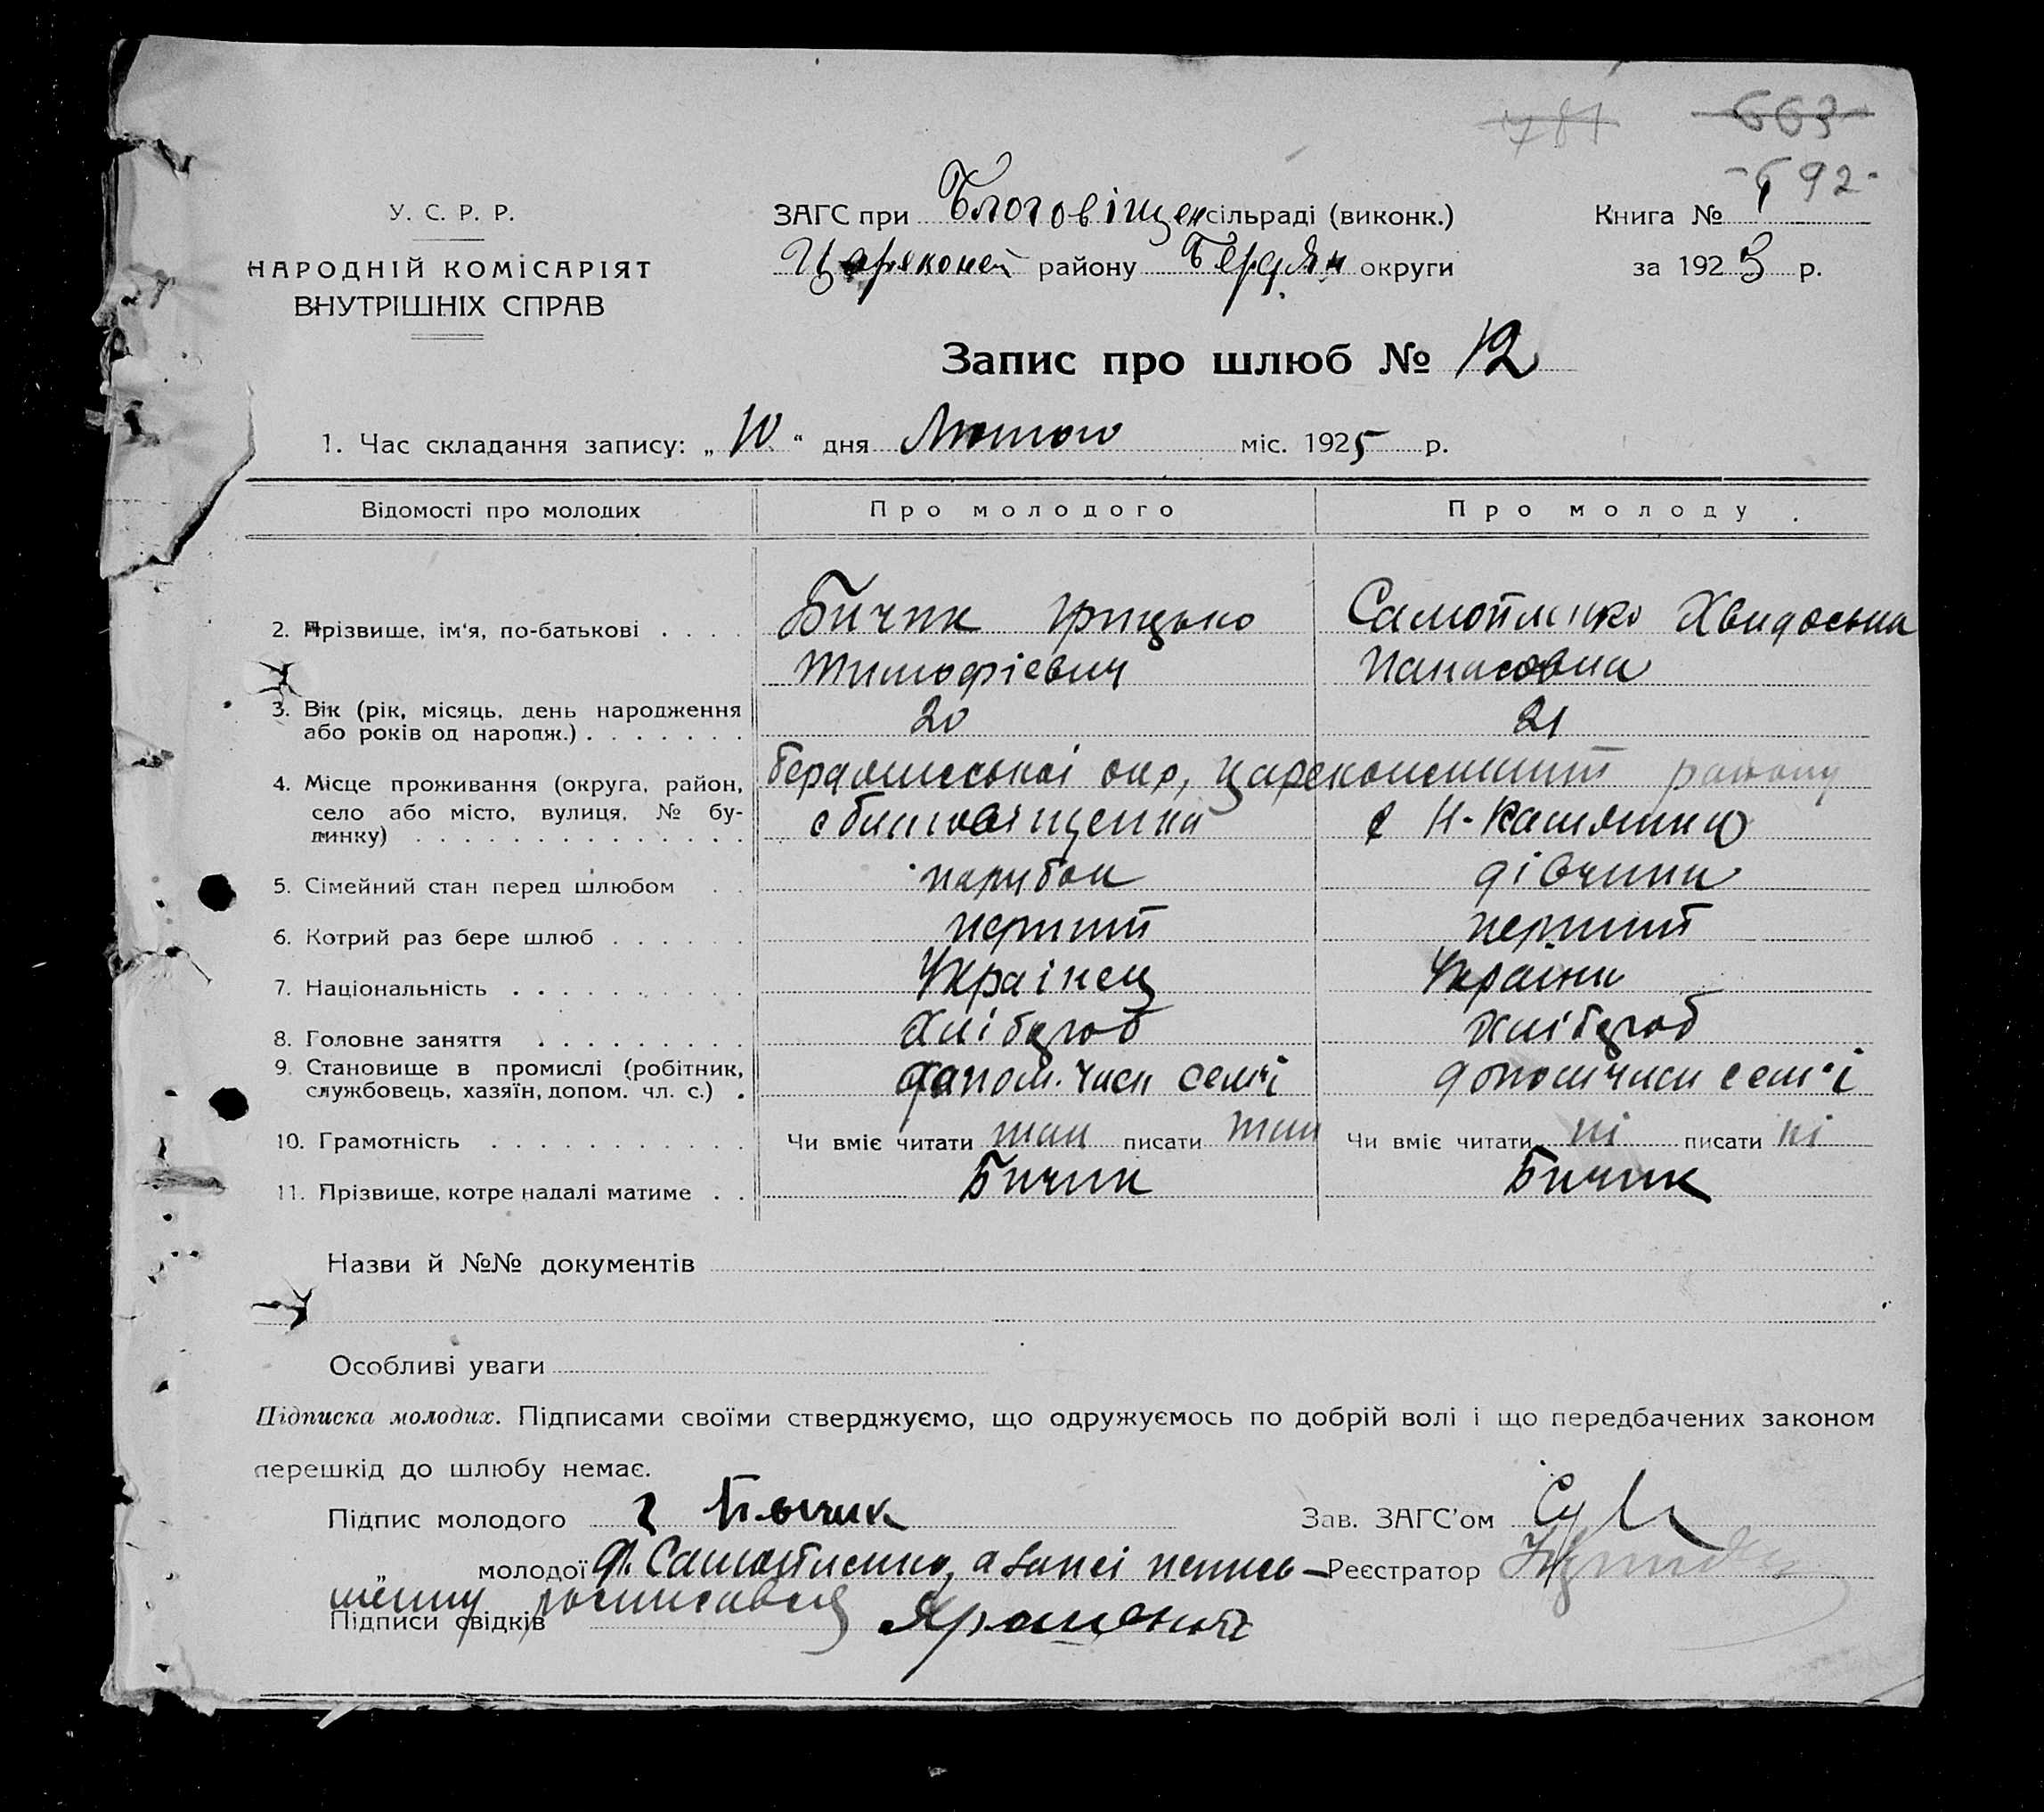 781 663
- 692 -
У. С. Р. Р.
НАРОДНІЙ КОМІСАРІЯТ
ВНУТРІШНІХ СПРАВ
ЗАГС при Благовіщен сільраді (виконк.)
Царекон району Бердян округи
Книга № 1
за 1925 р.
Запис про шлюб № 12
1. Час складання запису: „ 10 “ дня Лютого міс. 1925 р.
Відомості про молодих Про молодого Про молоду
2. Прізвище, ім'я, по-батькові . . . . Бичик Грицько Самойленко Хвидоська
Тимофієвич Панасовна
3. Вік (рік, місяць, день народження
або років од народж.) . . . . . . . 20 21
4. Місце проживання (округа, район, Бердянської окр, Цареконський району
село або місто, вулиця, № бу- с Благовіщенка с Н-Камянка
динку) . . . . . . . . . . . . . .
5. Сімейний стан перед шлюбом . . парубок дівчина
6. Котрий раз бере шлюб . . . . . . перший перший
7. Національність . . . . . . . . . . Українец Україн
8. Головне заняття . . . . . . . . . Хлібороб Хлібороб
9. Становище в промислі (робітник,
службовець, хазяїн, допом. чл. с.) . допом. член семї допом член сем'ї
10. Грамотність . . . . . . . . . . . Чи вміє читати так писати так Чи вміє читати ні писати ні
11. Прізвище, котре надалі матиме . . Бичик Бичик
Назви й №№ документів
Особливі уваги
Підписка молодих. Підписами своїми стверджуємо, що одружуємось по добрій волі і що передбачених законом
перешкід до шлюбу немає.
Підпис молодого Г Бычик Зав. ЗАГС'ом
„ молодої Ф. Самойленко, а за неї непись- Реєстратор
менну росписався
Підписи свідків